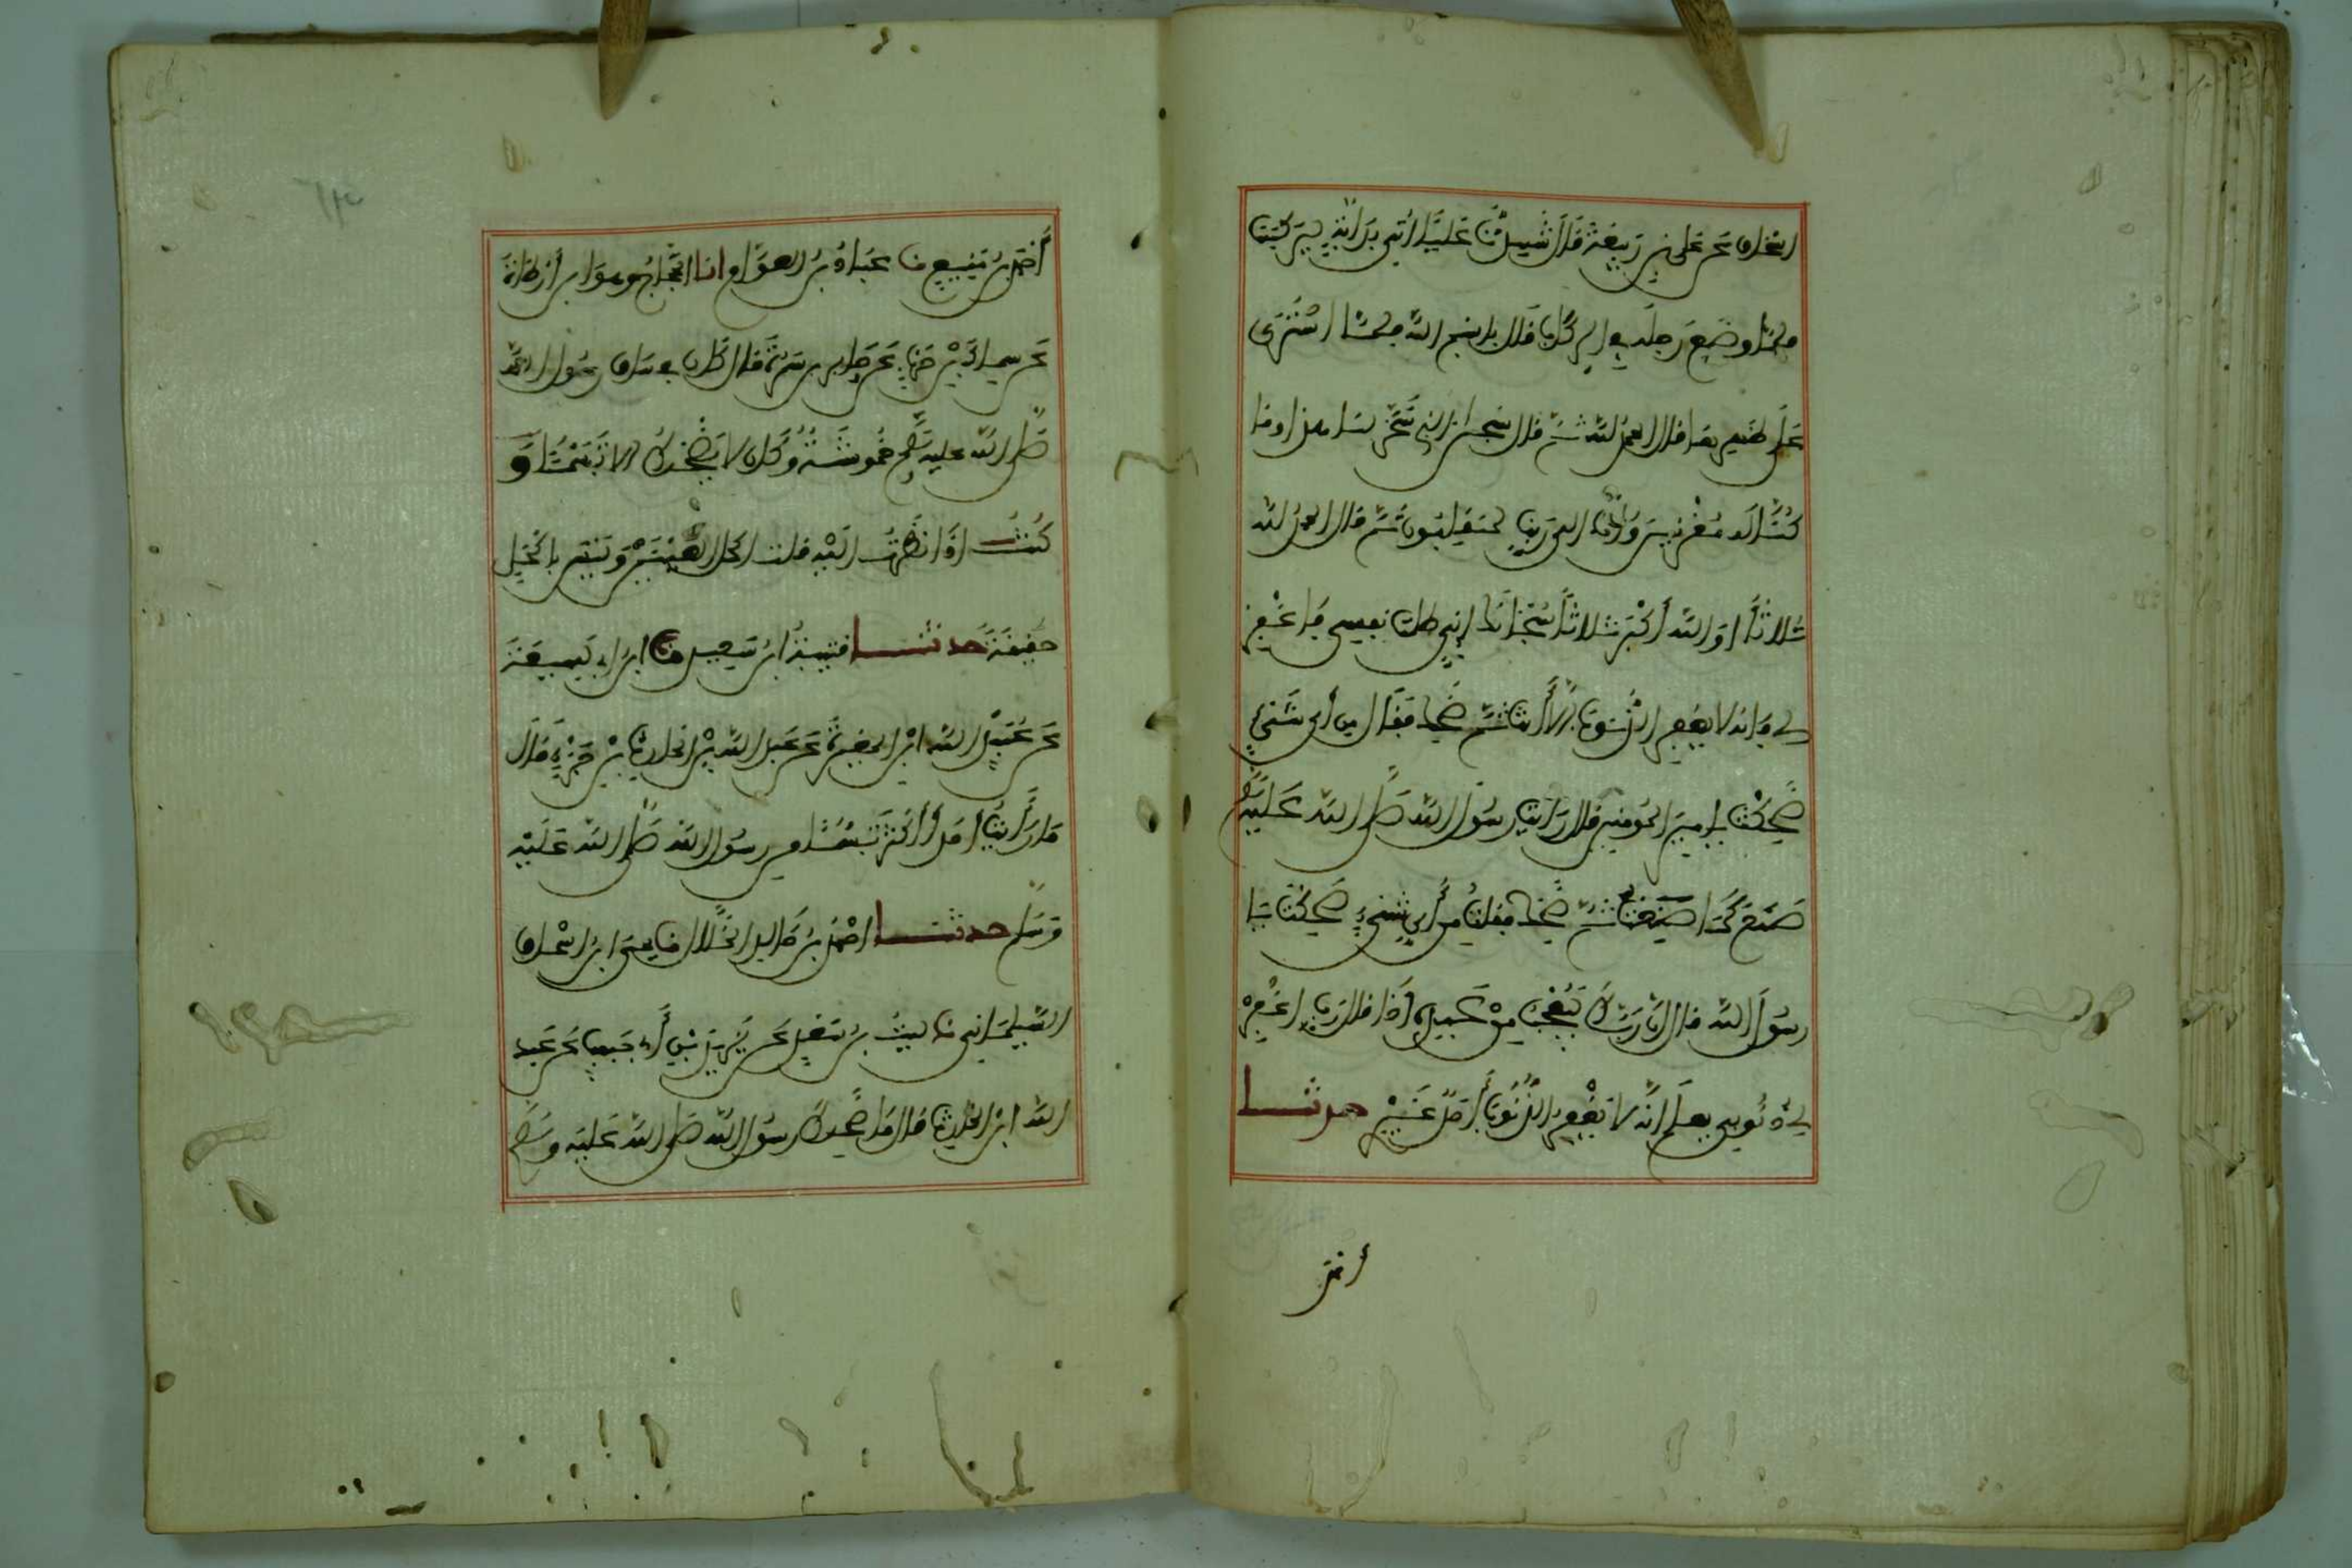 اسحاق عن علي بن ربيعة قال شهدت عليا أتي بدابة ليركبها
فلما وضع رجله في الركاب قال بسم الله فلما استوى
على ظهرها قال الحمد لله ثم قال سبحان الذي سخر لنا هذا وما
كنا له مقرنين وإنا الى ربنا لمنقلبون ثم قال الحمد لله
ثلاثا والله أكبر ثلاثا سبحانك إني ظلمت نفسي فاغفر
لي فإنه لا يغفر الذنوب إلا أنت ثم ضحك فقال من أي شيء
ضحكت يا امير المومنين قال رأيت رسول الله صلى الله عليه وسلم
صنع كما صنعت ثم ضحك فقلت من أي شيء ضحكت يا
رسول الله قال إن ربك ليعجب من عبده إذا قال رب اغفر
لي ذنوبي يعلم أنه لا يغفر الذنوب أحد غيري حدثنا
أحمد
أحمد بن منيع نا عباد بن العوام انا الحجاج وهو ابن أرطاة
عن سماك بن حرب عن جابر بن سمرة قال كان في ساق رسول الله
صلى الله عليه وسلم حموشة وكان لا يضحك إلا تبسما و
كنت اذا نظرت اليه قلت اكحل العينين وليس بأكحل
حدثنا قتيبة ابن سعيد نا ابن لهيعة
عن عبيد الله ابن المغيرة عن عبد الله بن الحارث بن جزء قال
ما رأيت أحدا أكثر تبسما من رسول الله صلى الله عليه
وسلم حدثنا احمد بن خالد الخلال نا يحيى ابن اسحاق
السيلحاني نا ليث بن سعد عن يزيد بن أبي حبيب عن عبد
الله ابن الحارث قال ما ضحك رسول الله صلى الله عليه وسلم